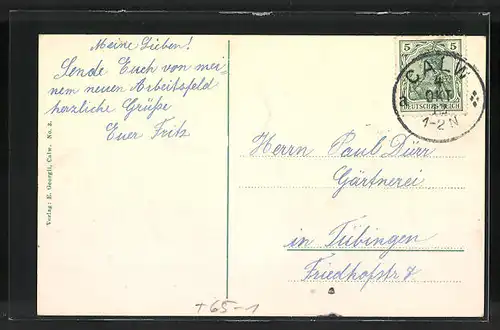 Meine Lieben!
Sende Euch von mei-
nem neuen Arbeitsfeld
herzliche Grüße
Euer Fritz
Verlag: E. Georgii, Calw. No. 2.
5 5
DEUTSCHES REICH
CALW
4
OKT
1-2N
a
Herrn Paul Dürr
Gärtnerei
in Tübingen
Friedhofstr 7
+65-1